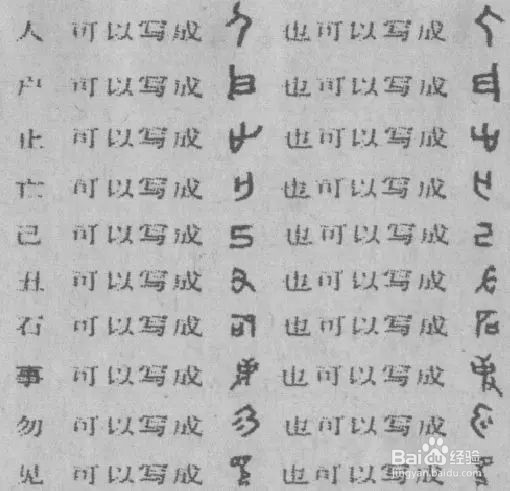 人 可以写成 也可以写成
户 可以写成 也可以写成
止 可以写成 也可以写成
亡 可以写成 也可以写成
己 可以写成 也可以写成
丑 可以写成 也可以写成
石 可以写成 也可以写成
事 可以写成 也可以写成
勿 可以写成 也可以写成
见 可以写成 也可以写成
Baidu经验
jingyan.baidu.com